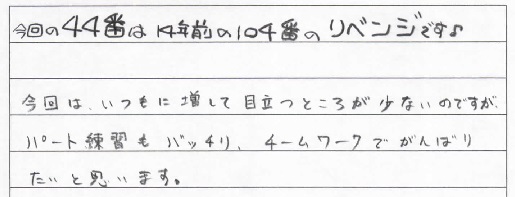 今回の44番は14年前の104番のリベンジです♪
今回は、いつもに増して目立つところが少ないのですが、
パート練習もバッチリ、チームワークでがんばり
たいと思います。